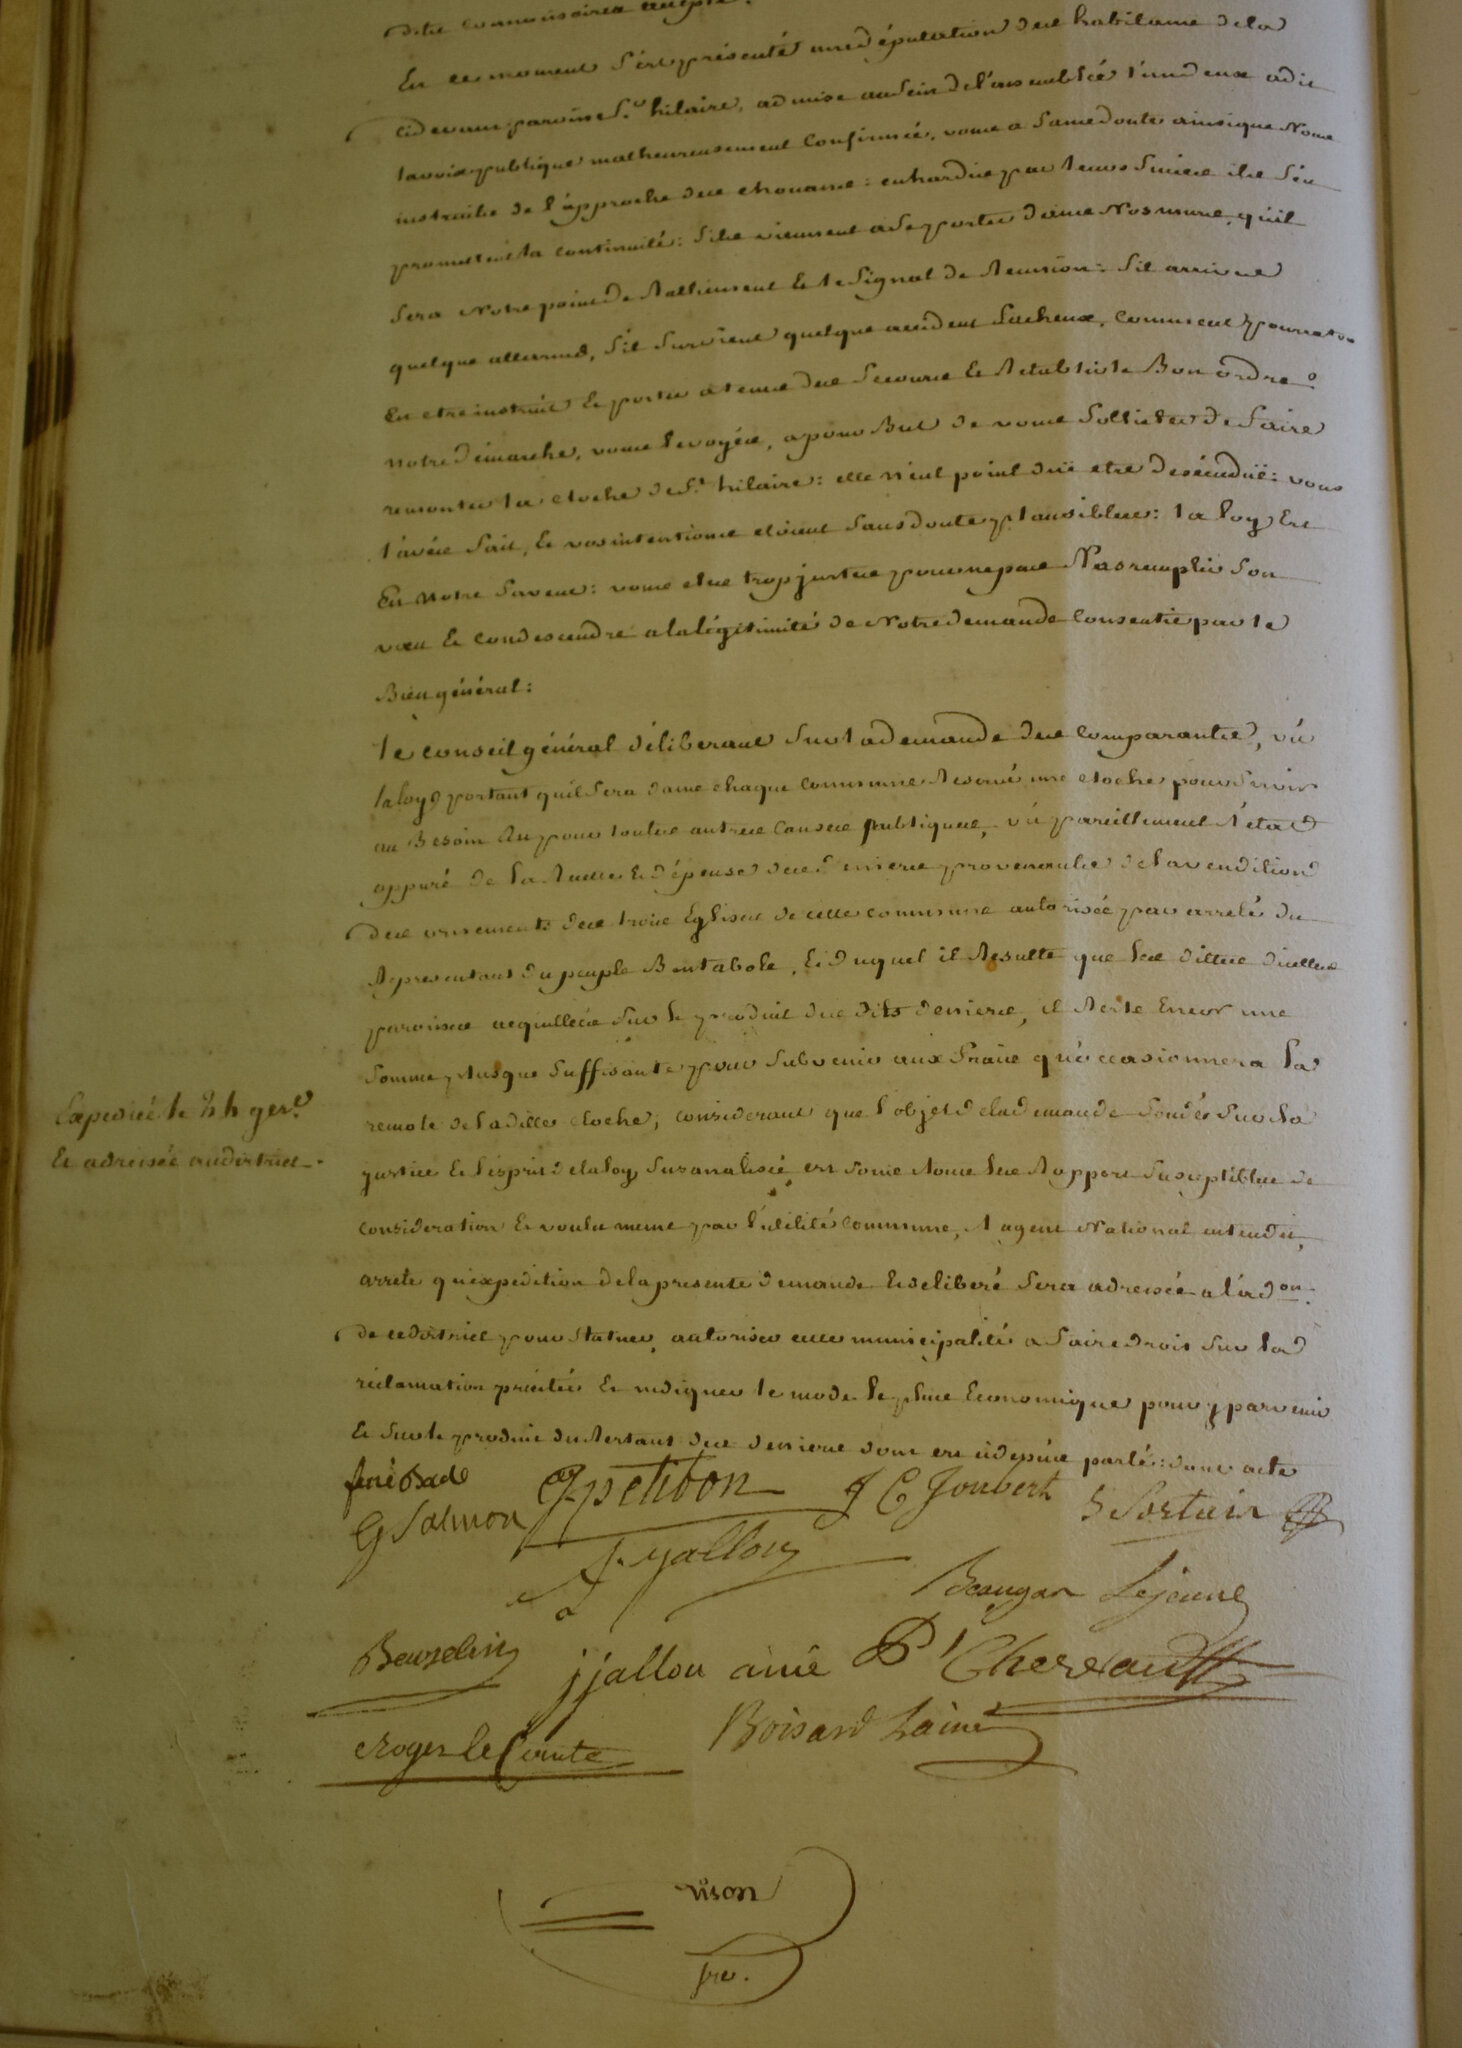 En ce moment s'est présenté une députation des habitans de la
cidevant paroisse St hilaire, admise au sein de l'assemblée l'un d'eux a dit
la voix publique malheureusement confirmée, vous a sans doute ainsi que Nous
instruits de l'approche des chouans: enhardis par leurs succès ils s'en
promettent la continuité: s'ils viennent a se porter dans Nos murs, qu'il
sera Notre point de ralliement et le signal de reunion: s'il arrive
quelque allarme, s'il survient quelque accident facheux, comment pourra-t-on
En etre instruit et porter a tems des secours et retablir le Bon ordre
notre démarche, vous le voyéz, a pour But de vous solliciter de faire
remonter la cloche de St hilaire: elle n'eut point due etre descenduë: vous
l'avéz fait, et vos intentions etoient sans doute plausibles: la loy Est
En Notre faveur: vous etes trop justes pour ne pas remplir son
vœu et condescendre a la légitimité de Notre demande consentie par le
Bien général:
le conseil général déliberant sur la demande des comparants, vû
la loy portant qu'il sera dans chaque commune reservé une cloche pour servir
au Besoin pour toutes autres causes publiques, vû pareillement l'état
appuré de la recette et dépense des deniers provenants de la vendition
des ornements des trois Eglises de cette commune autorisée par arreté du
representant du peuple Bentabole, et duquel il resulte que les dettes d'icelles
paroisses acquittées sur le produit des dits deniers, il reste Encor une
somme plusque suffisante pour subvenir aux fraix qu'occasionnera la
remote de la ditte cloche; considerant que l'objet de la demande fondée sur la
justice et l'esprit de la loy susanalisée est sous tous les rapports susceptibles de
consideration et voulu meme par l'utilité commune, l'agent National entendu,
arrete qu'expedition de la presente demande et deliberé sera adressée a l'adon
de ce district pour statuer, autoriser cette municipalité a faire droit sur la
réclamation précitée et indiquer le mode le plus Economique pour y parvenir
et sur le produit du restant des deniers dont est cidessus parlé: dont acte
Expedié le 24 gerl
Et adressée au district
G Salmon petibon J C Joubert Fortuin
J. jallou
Beaugar Lejeune
Bourdelin jjallou ainé P Chereault
Roger le Comte Boisard Lainé
vison
sre.